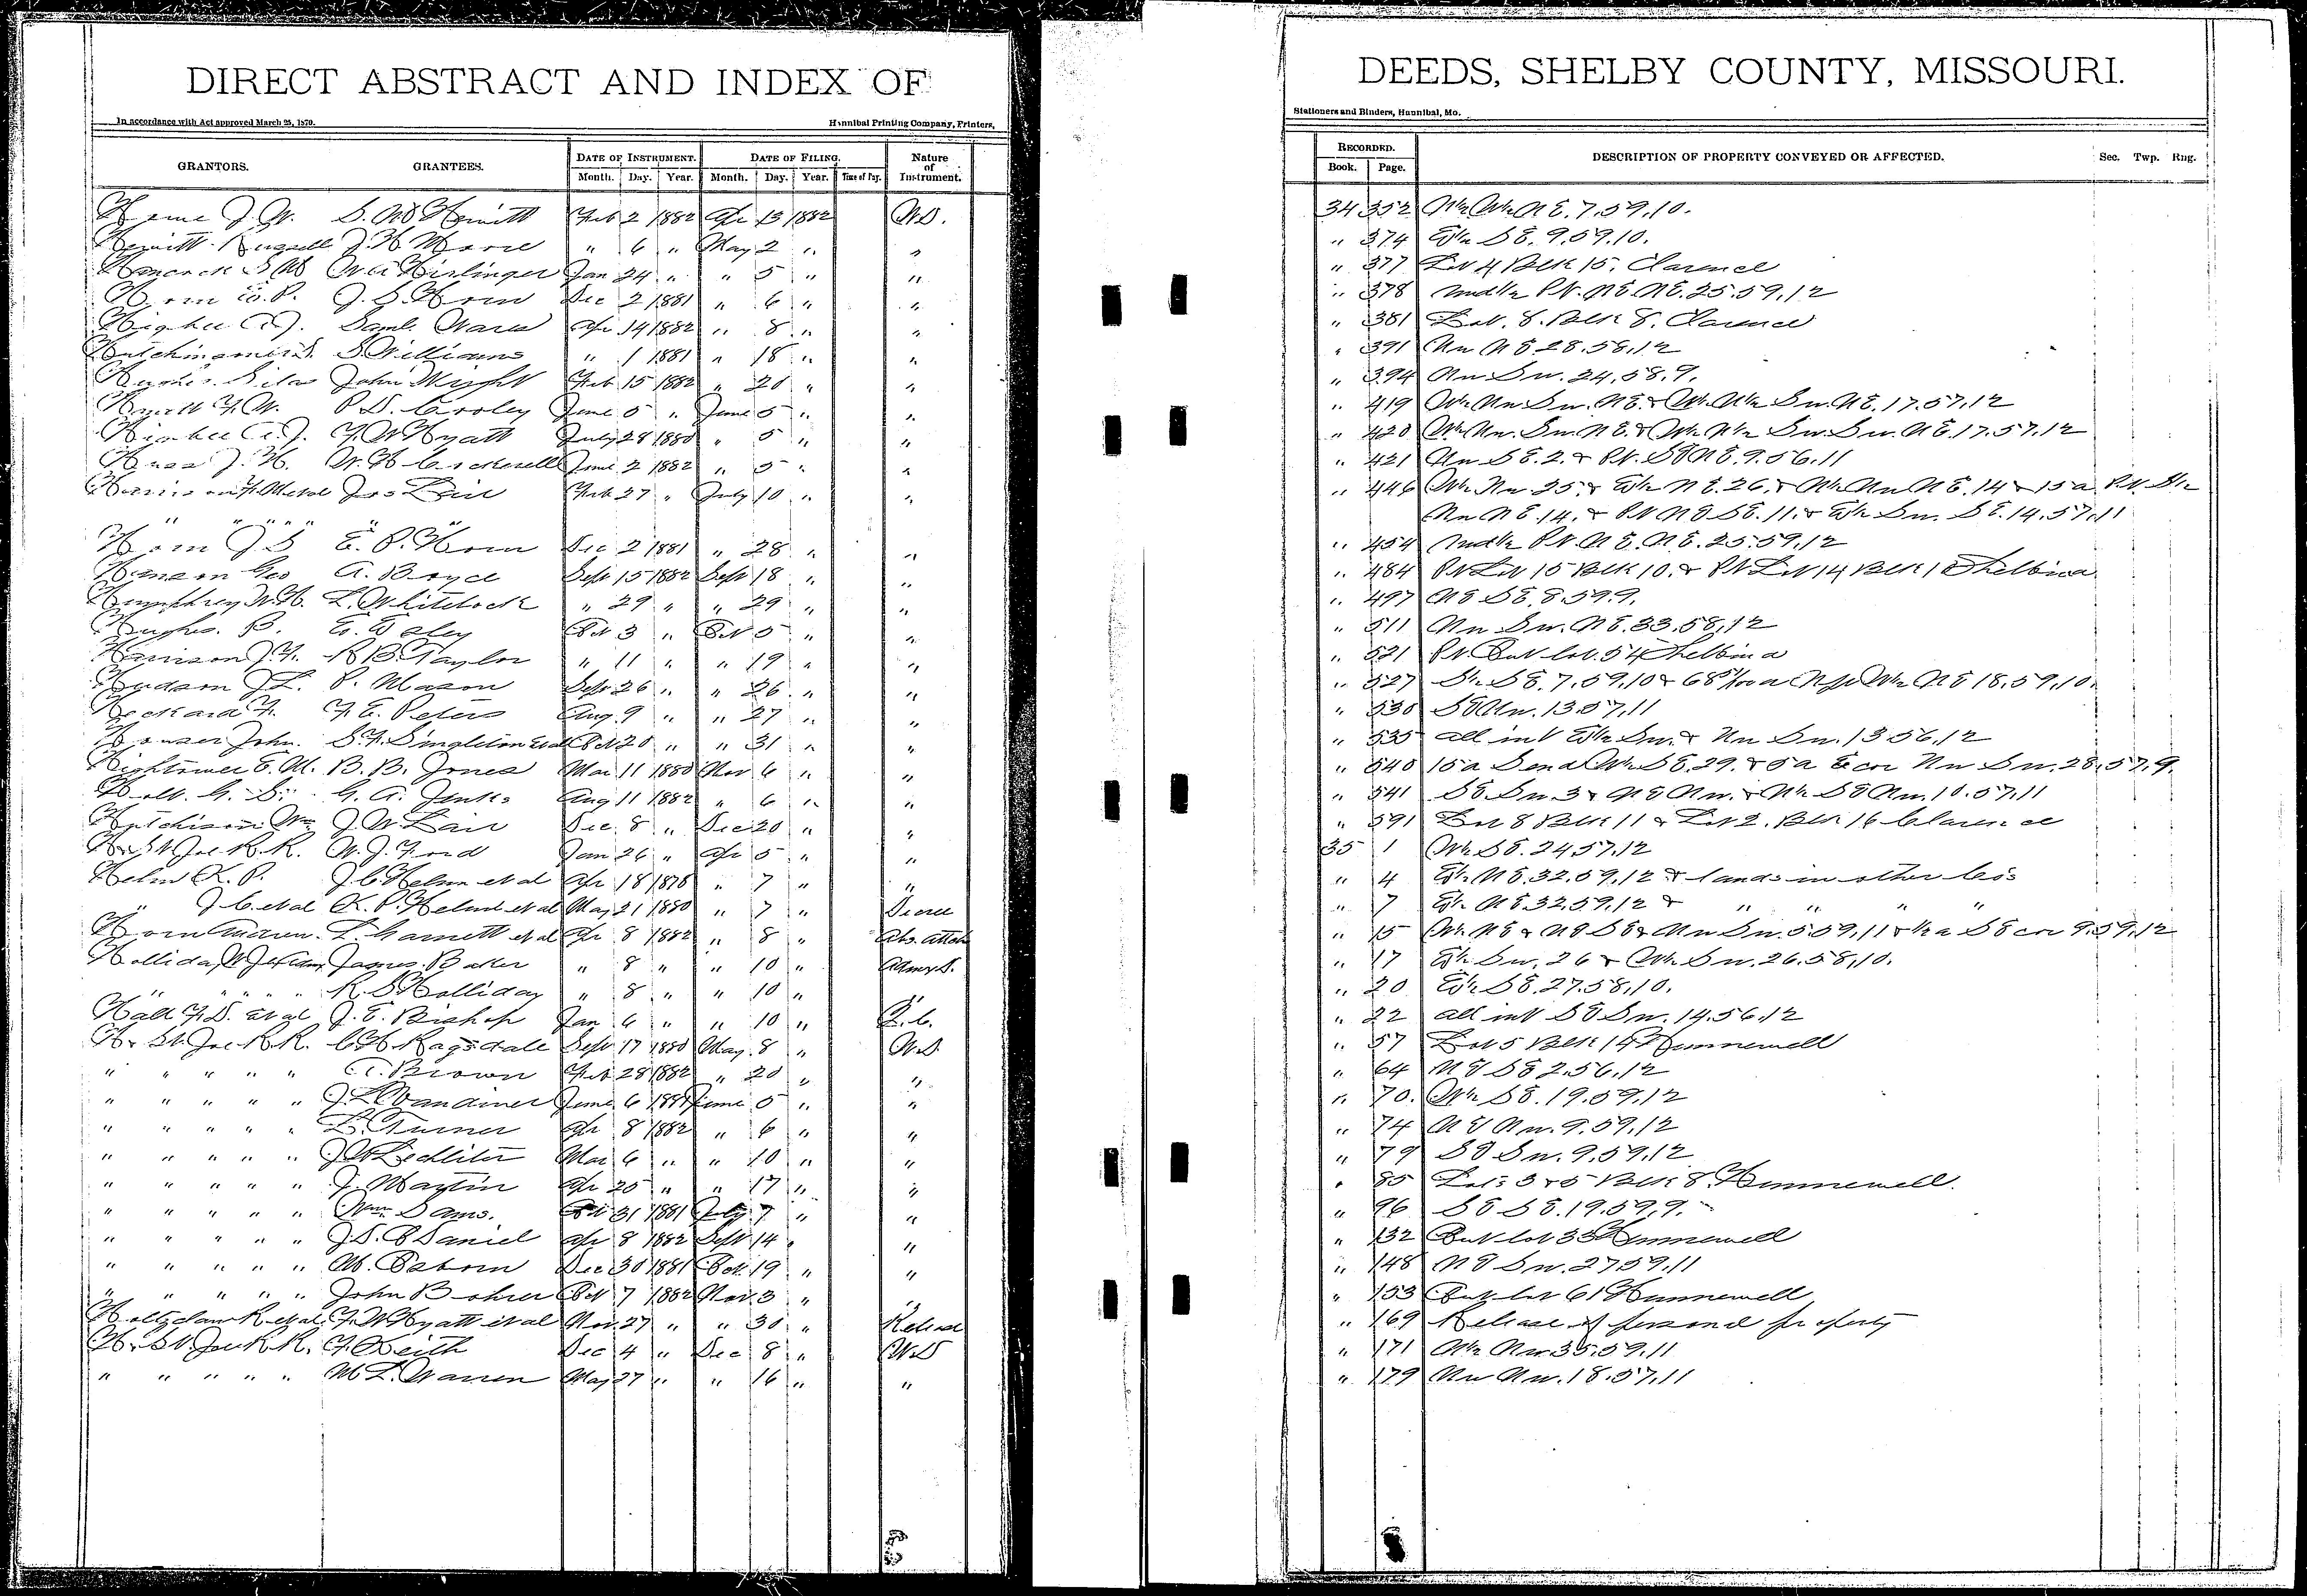 DIRECT ABSTRACT AND INDEX OF
In accordance with Act approved March 25, 1879. Hannibal Printing Company, Printers,
GRANTORS. GRANTEES. DATE OF INSTRUMENT. DATE OF FILING. Nature of Instrument.
Month. Day. Year. Month. Day. Year. Time of Day.
J. W. Feb 2 1882 Apr 13 1882 W.D.
Hewitt Russell J. H. Moore " 6 " May 2 " "
Hancock Jan 24 " " 5 " "
Horn E. P. J. S. Horn Dec 2 1881 " 6 " "
Higbee A. J. Saml. Ware Apr 14 1882 " 8 " "
S. Williams " 1 1881 " 18 " "
Hughes Silas John Wright Feb 15 1882 " 20 " "
Hyatt F. W. P. D. Cooley June 5 " June 5 " "
Higbee A. J. F. W. Hyatt July 28 1880 " 5 " "
J. H. W. H. Cockerell June 2 1882 " 5 " "
Jas Lair Feb 27 " July 10 " "
" " " " " "
Horn J. S. E. P. Horn Dec 2 1881 " 28 " "
Geo A. Boyce Sept 15 1882 Sept 18 " "
Humphrey W. H. L. Whitelock " 29 " " 29 " "
Hughes. B. E. Ealey Oct 3 " Oct 5 " "
Harrison J. F. R B Taylor " 11 " " 19 " "
Hudson J L. P. Mason Sept 26 " " 26 " "
Heckard F. F. E. Peters Aug 9 " " 27 " "
Houser John. S. F. Singleton et al Oct 20 " " 31 " "
Hightower E. M. B. B. Jones Mar 11 1880 Nov 6 " "
Holt. G. S. G. A. Jenks Aug 11 1882 " 6 " "
Hutchison Wm J. W. Lair Dec 8 " Dec 20 " "
H. & St Joe R. R. W. J. Ford Jan 26 " Apr 5 " "
Helm K. P. J. C. Helm et al Apr 18 1878 " 7 " "
" J. C. et al K. P. Helm et al May 21 1880 " 7 " Decree
Horn Andrew. L. Garnett et al Apr 8 1882 " 8 " Abs. Attch
Holliday James Baker " 8 " " 10 " Admrs D.
" " " " R. S. Holliday " 8 " " 10 " "
Hall F. D. et al J. E. Bishop Jan 6 " " 10 " Q. C.
H. & St. Joe R. R. C. H. Ragsdale Sept 17 1880 May 8 " W.D.
" " " " " A. Brown Feb 28 1882 " 20 " "
" " " " " J. L. Vandiver June 6 June 5 " "
" " " " " L. Turner Apr 8 1882 " 6 " "
" " " " " J W Lechliter Mar 6 " " 10 " "
" " " " " J. Martin Apr 25 " " 17 " "
" " " " " Wm Sams. Oct 31 1881 July 7 " "
" " " " " J. D. O Daniel Apr 8 1882 Sept 14 " "
" " " " " M. Osborn Dec 30 1881 Oct. 19 " "
" " " " " John Bohrer Oct 7 1882 Nov. 3 " "
F. W. Hyatt et al Nov 27 " " 30 " Release
H. & St. Joe R. R. F. Keith Dec 4 " Dec 8 " W.D
" " " " " M L. Warren May 27 " " 16 " "
DEEDS, SHELBY COUNTY, MISSOURI.
Stationers and Binders, Hannibal, Mo.
RECORDED. DESCRIPTION OF PROPERTY CONVEYED OR AFFECTED. Sec. Twp. Rng.
Book. Page.
34 352 N½ W½ N E. 7,59,10.
" 374 E½ S E. 9.59.10.
" 377 Lot 4 Blk 15. Clarence
" 378 und½ Pt. N E. N E. 25.59,12
" 381 Lot. 8. Blk 8. Clarence
" 391 Nw N E 28.58,12
" 394 Nw Sw. 24,58,9.
" 419 W½ Nw Sw. N E. & W½ W½ Sw. N E. 17.57,12
" 420 W½ Nw. Sw. N E. & W½ W½ Sw. Sw. N E. 17.57,12
" 421 Nw S E. 2. & Pt. S E N E. 9.56.11
" 446 W½ Nw 25. & E½ N E. 26. & N½ Nw N E. 14 & 15 a Pt. S½
Nw N E. 14. & Pt N E S E. 11. & E½ Sw. S E. 14.57,11
" 454 und½ Pt. N E. N E. 25.59,12
" 484 Pt Lot 15 Blk 10. & Pt Lot 14 Blk 1 Shelbina
" 497 N E S E. 8.59.9.
" 511 Nw Sw. N E. 33.58,12
" 521 Pt. Out lot. 54 Shelbina
" 527 S½ S E. 7,59,10 & N pt W½ N E 18,59,10.
" 530 S E Nw. 13.57,11
" 535 all int E½ Sw. & Nw Sw. 13 56,12
" 540 15 a S end W½ S E. 29. & 5 a cor Nw Sw. 28,57,9.
" 541 S E. Sw. 3 & N E Nw. & N½ S E Nw. 10.57.11
" 591 Lot 8 Blk 11 & Lot 2. Blk 16 Clarence
35 1 W½ S E. 24 57,12
" 4 E½ N E. 32.59,12 & lands in other Co's
" 7 E½ N E 32.59,12 & " " " "
" 15 W½ N E & N E S E & Nw Sw. 5.59,11 & ½ a S E cor 9.59,12
" 17 E½ Sw. 26 & W½ Sw. 26.58,10.
" 20 E½ S E. 27.58,10.
" 22 all int S E Sw. 14.56.12
" 57 Lot 5 Blk 14 Hunnewell
" 64 N E S E 2.56,12
" 70. W½ S E. 19.59,12
" 74 N E Nw. 9.59,12
" 79 S E Sw. 9.59,12
" 85 Lots 3 & 5 Blk 8. Hunnewell.
" 96 S E S E. 19.59,9.
" 132 Out lot 33 Hunnewell
" 148 N E Sw. 27 59,11
" 153 Out lot 61 Hunnewell
" 169 Release of personal property
" 171 N½ Nw 35.59.11
" 179 Nw Nw. 18.57,11